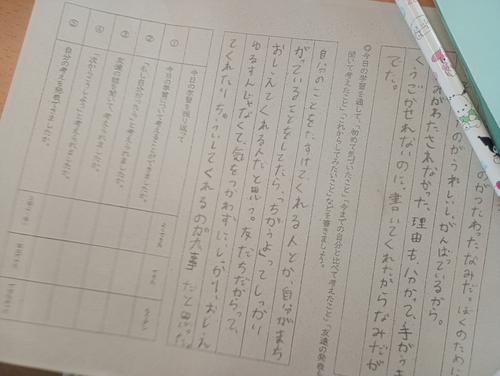 のがつたわったなみだ。ぼくのために
のがうれしいし、がんばっているから。
みがわたされなかった理由も分かって、手がうま
くうごかせないのに、書いてくれたからなみだが
でた。
◎今日の学習を通して、「初めて気づいたこと」「今までの自分と比べて考えたこと」「友達の発表を
聞いて考えたこと」「これからしてみたいこと」などを書きましょう。
自分のことをたすけてくれる人とか、自分がまち
がっていることをしてたら、「ちがうよ」ってしっかり
おしえてくれるんだと思う。友だちだからって、
ゆるすんじゃなくて、気をつかわずにいし、しっかりおしえ
てくれたり、ちゅういしてくれるのが大事だと思った。
今日の学習を振り返って
① 今日の学習について考えることができましたか。
② 「もし自分だったら」と考えられましたか。
③ 友達の話を聞いて、考えられましたか。
④ 次からこうしようと考えられましたか。
⑤ 自分の考えを発表できましたか。